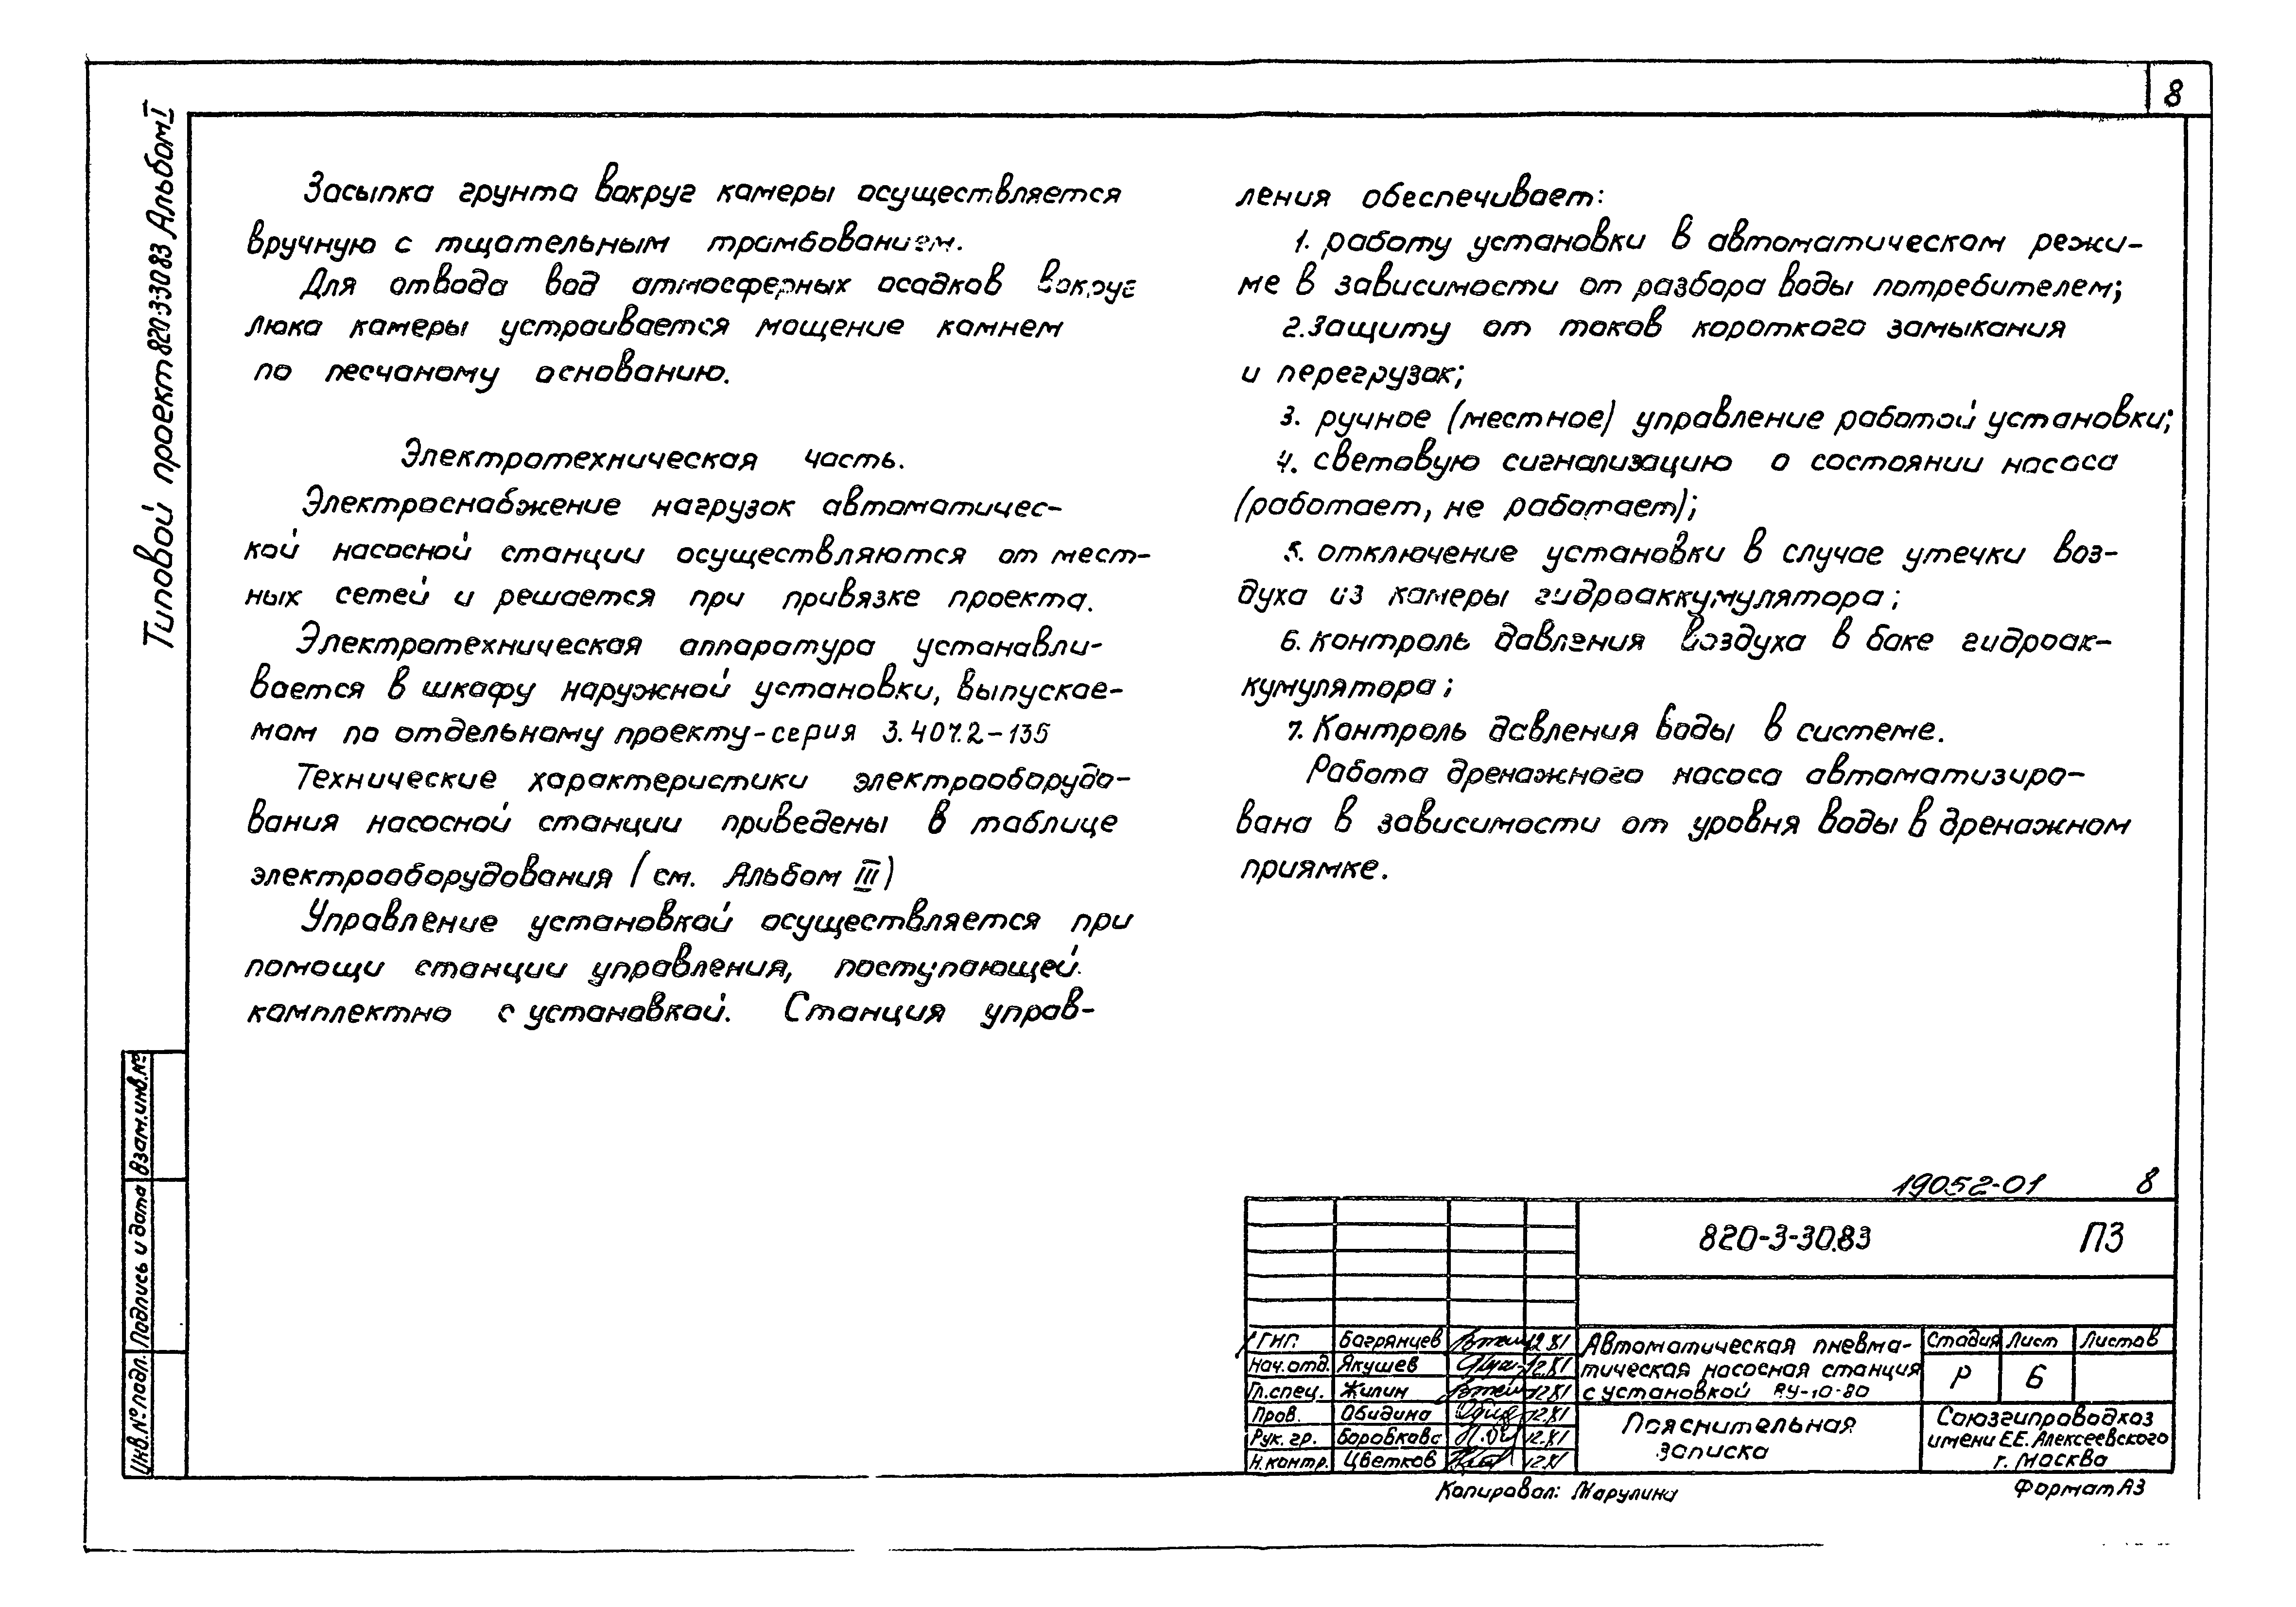 8
Типовой проект 820-3-30.83 Альбом I
Засыпка грунта вокруг камеры осуществляется
вручную с тщательным трамбованием.
Для отвода вод атмосферных осадков вокруг
люка камеры устраивается мощение камнем
по песчаному основанию.
Электротехническая часть.
Электроснабжение нагрузок автоматичес-
кой насосной станции осуществляются от мест-
ных сетей и решается при привязке проекта.
Электротехническая аппаратура устанавли-
вается в шкафу наружной установки, выпускае-
мом по отдельному проекту-серия 3.407.2-135
Технические характеристики электрооборудо-
вания насосной станции приведены в таблице
электрооборудования (см. Альбом III)
Управление установкой осуществляется при
помощи станции управления, поступающей
комплектно с установкой. Станция управ-
ления обеспечивает:
1. работу установки в автоматическом режи-
ме в зависимости от разбора воды потребителем;
2. Защиту от токов короткого замыкания
и перегрузок;
3. ручное (местное) управление работой установки;
4. световую сигнализацию о состоянии насоса
(работает, не работает);
5. отключение установки в случае утечки воз-
духа из камеры гидроаккумулятора;
6. контроль давления воздуха в баке гидроак-
кумулятора;
7. Контроль давления воды в системе.
Работа дренажного насоса автоматизиро-
вана в зависимости от уровня воды в дренажном
приямке.
Взам.инв.№
Подпись и дата
Инв.№подл.
19052-01 8
820-3-30.83 ПЗ
ГИП. Багрянцев 12.XI
Нач.отд. Якушев 12.XI
Гл.спец. Жилин 12.XI
Пров. Обидина 12.XI
Рук.гр. Боровкова 12.XI
Н.контр. Цветков 12.XI
Автоматическая пневма-
тическая насосная станция
с установкой ВУ-10-80
Стадия Лист Листов
Р 6
Пояснительная
записка
Союзгипроводхоз
имени Е.Е. Алексеевского
г. Москва
Копировал: Марулина
Формат А3